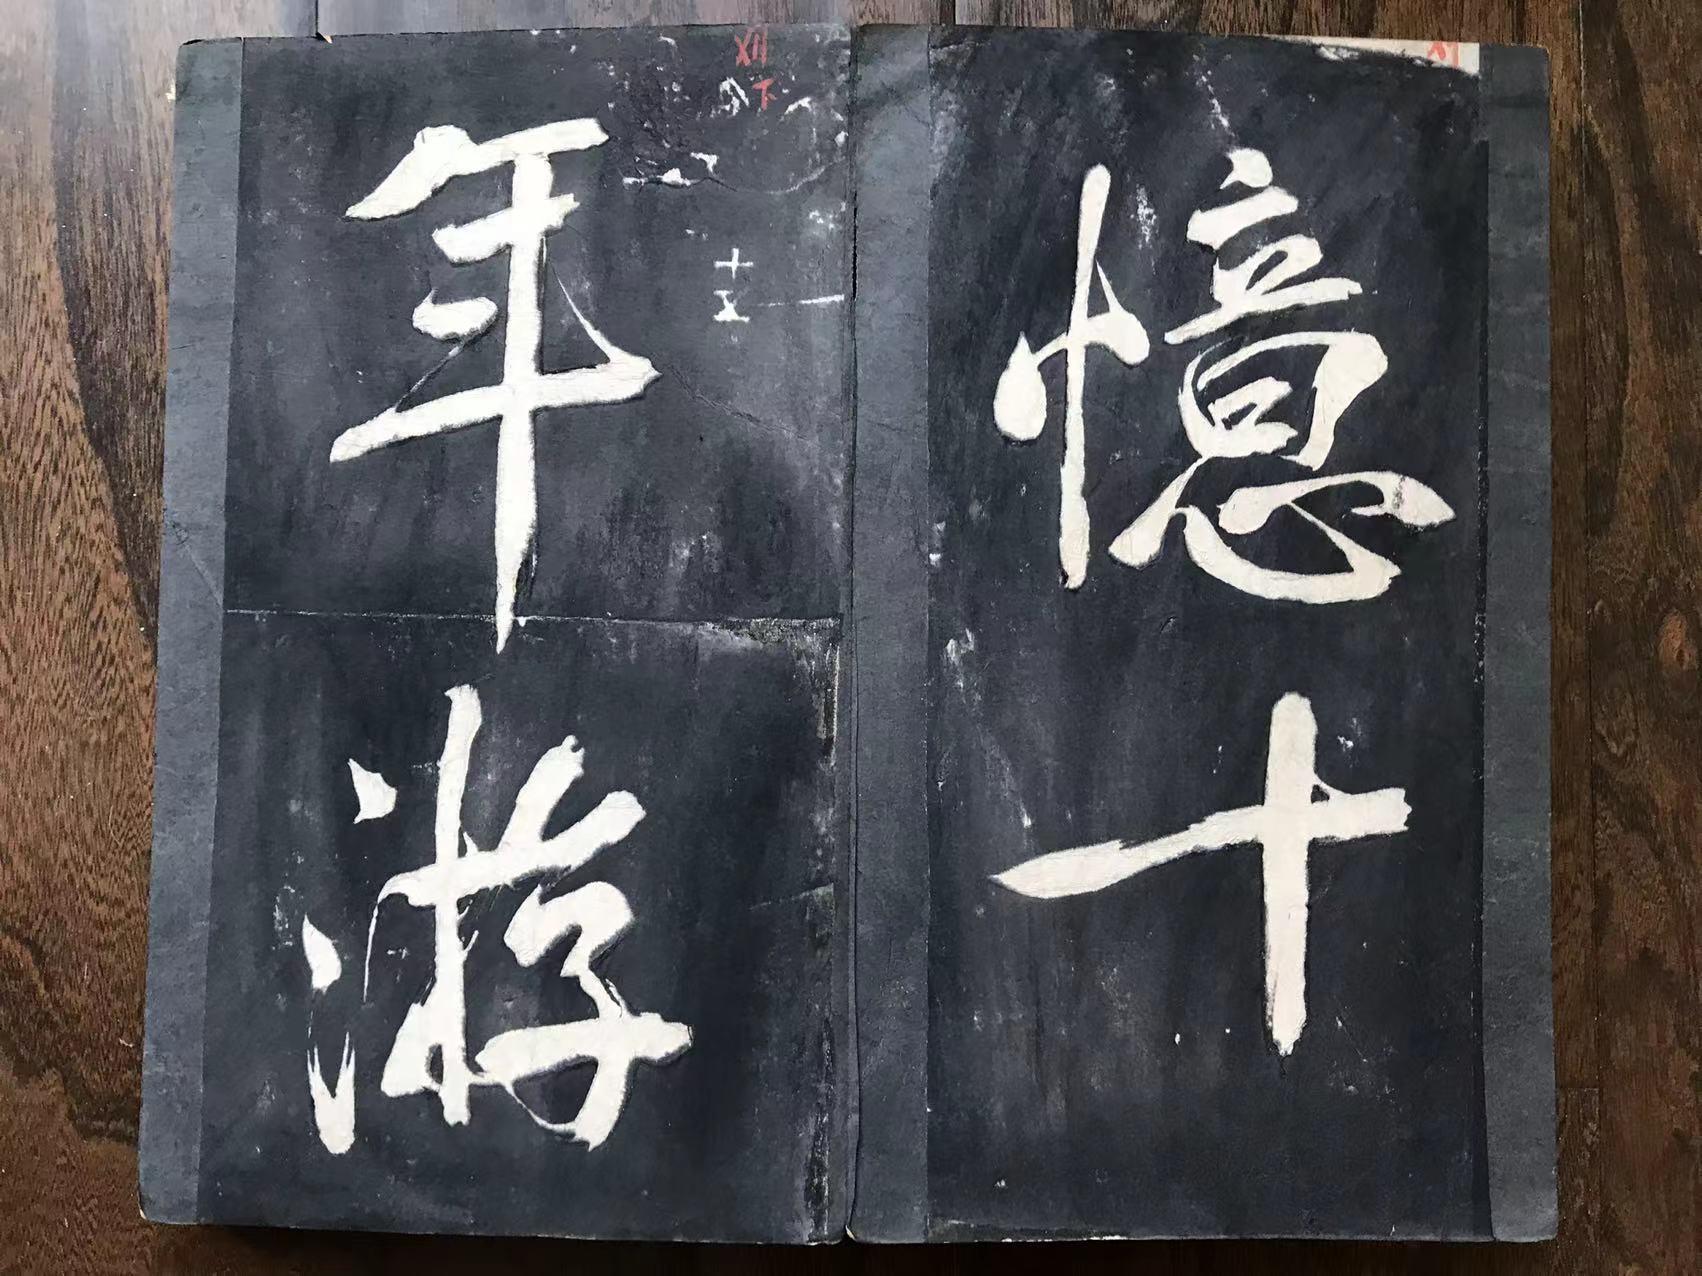 憶十
年游
十五
XII
下
XI